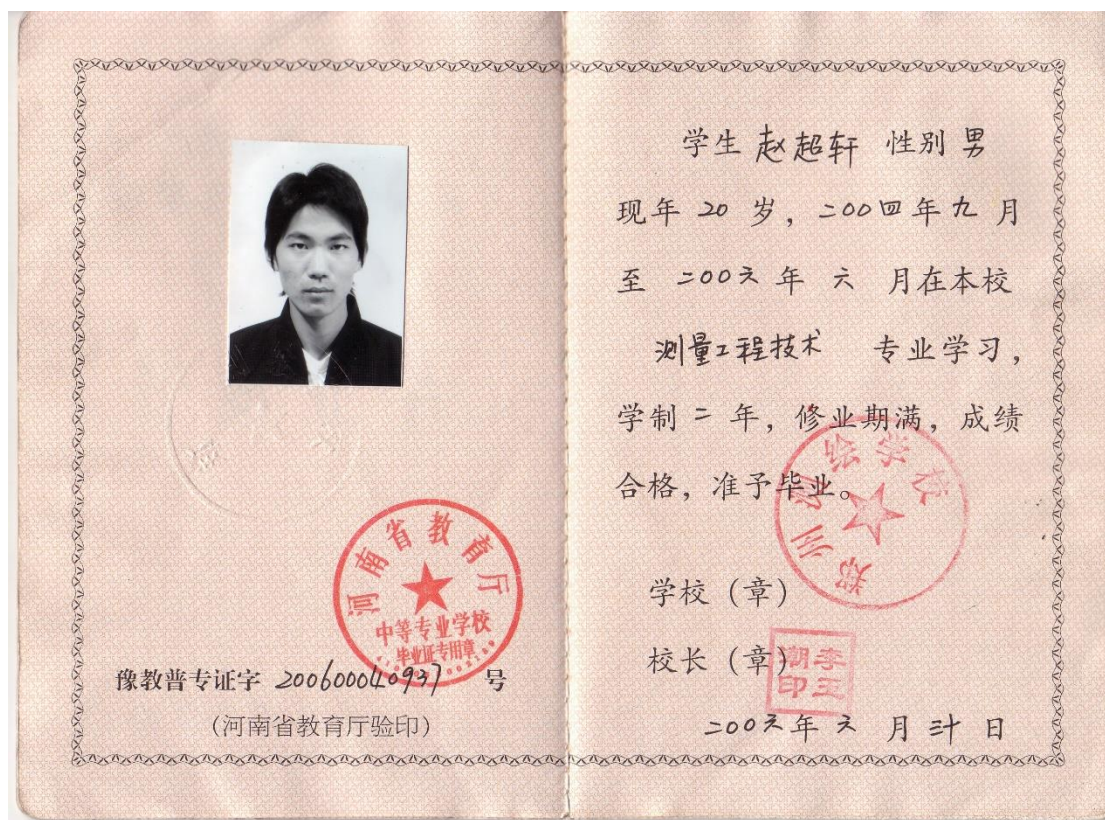 河南省教育厅
中等专业学校
毕业证专用章
豫教普专证字 200600040937 号
(河南省教育厅验印)
学生 赵超轩 性别 男
现年 20 岁，二00四年九月
至 二00六年 六 月在本校
测量工程技术 专业学习，
学制二年，修业期满，成绩
合格，准予毕业。
郑州测绘学校
学校（章）
校长（章）
李玉潮印
二00六年 六 月 三十 日